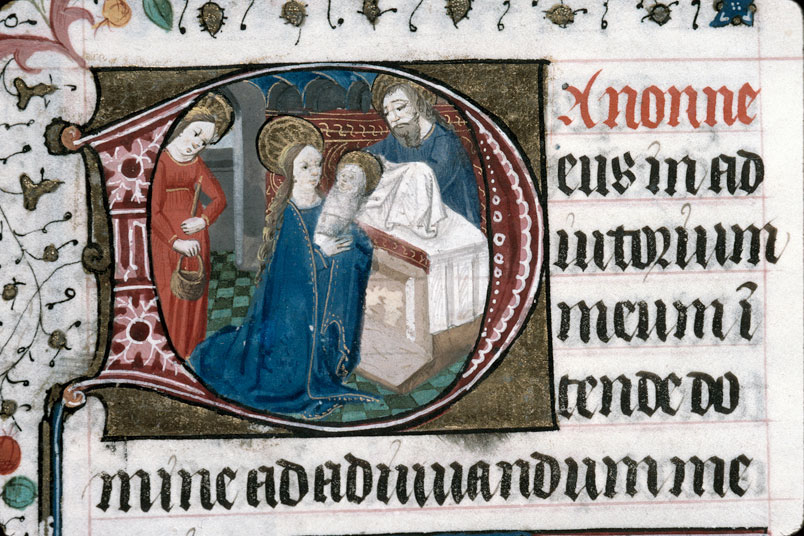 A nonne
Deus in ad
iutorium
meum ī
tende do
mine ad adiuuandum me